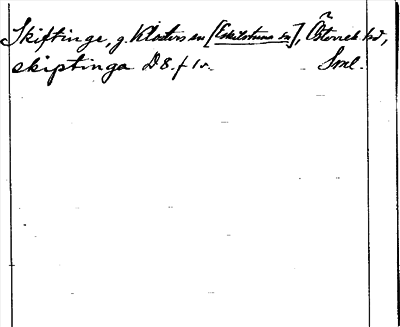 Skiftinge, g. Klosters sn [Eskilstuna sn], Österrek hd,
skiptinga D 8. f 1v. Sml.